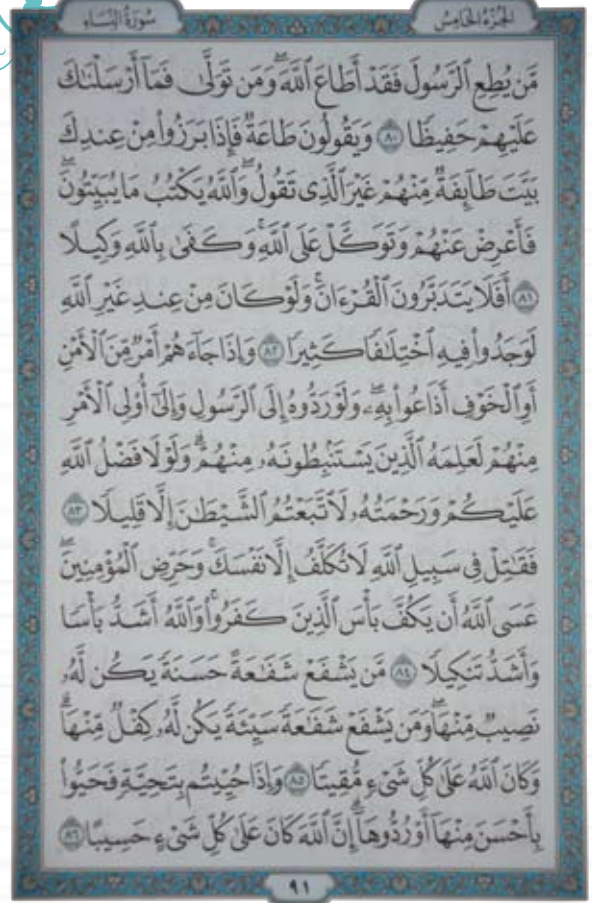 الجزء الخامس
سورة النساء
مَّن يُطِعِ ٱلرَّسُولَ فَقَدْ أَطَاعَ ٱللَّهَ ۖ وَمَن تَوَلَّىٰ فَمَآ أَرْسَلْنَٰكَ
عَلَيْهِمْ حَفِيظًا ٨٠ وَيَقُولُونَ طَاعَةٌ فَإِذَا بَرَزُوا۟ مِنْ عِندِكَ
بَيَّتَ طَآئِفَةٌ مِّنْهُمْ غَيْرَ ٱلَّذِى تَقُولُ ۖ وَٱللَّهُ يَكْتُبُ مَا يُبَيِّتُونَ ۖ
فَأَعْرِضْ عَنْهُمْ وَتَوَكَّلْ عَلَى ٱللَّهِ ۚ وَكَفَىٰ بِٱللَّهِ وَكِيلًا
٨١ أَفَلَا يَتَدَبَّرُونَ ٱلْقُرْءَانَ ۚ وَلَوْ كَانَ مِنْ عِندِ غَيْرِ ٱللَّهِ
لَوَجَدُوا۟ فِيهِ ٱخْتِلَٰفًا كَثِيرًا ٨٢ وَإِذَا جَآءَهُمْ أَمْرٌ مِّنَ ٱلْأَمْنِ
أَوِ ٱلْخَوْفِ أَذَاعُوا۟ بِهِۦ ۖ وَلَوْ رَدُّوهُ إِلَى ٱلرَّسُولِ وَإِلَىٰٓ أُو۟لِى ٱلْأَمْرِ
مِنْهُمْ لَعَلِمَهُ ٱلَّذِينَ يَسْتَنۢبِطُونَهُۥ مِنْهُمْ ۗ وَلَوْلَا فَضْلُ ٱللَّهِ
عَلَيْكُمْ وَرَحْمَتُهُۥ لَٱتَّبَعْتُمُ ٱلشَّيْطَٰنَ إِلَّا قَلِيلًا ٨٣
فَقَٰتِلْ فِى سَبِيلِ ٱللَّهِ لَا تُكَلَّفُ إِلَّا نَفْسَكَ ۚ وَحَرِّضِ ٱلْمُؤْمِنِينَ ۖ
عَسَى ٱللَّهُ أَن يَكُفَّ بَأْسَ ٱلَّذِينَ كَفَرُوا۟ ۚ وَٱللَّهُ أَشَدُّ بَأْسًا
وَأَشَدُّ تَنكِيلًا ٨٤ مَّن يَشْفَعْ شَفَٰعَةً حَسَنَةً يَكُن لَّهُۥ
نَصِيبٌ مِّنْهَا ۖ وَمَن يَشْفَعْ شَفَٰعَةً سَيِّئَةً يَكُن لَّهُۥ كِفْلٌ مِّنْهَا ۗ
وَكَانَ ٱللَّهُ عَلَىٰ كُلِّ شَىْءٍ مُّقِيتًا ٨٥ وَإِذَا حُيِّيتُم بِتَحِيَّةٍ فَحَيُّوا۟
بِأَحْسَنَ مِنْهَآ أَوْ رُدُّوهَآ ۗ إِنَّ ٱللَّهَ كَانَ عَلَىٰ كُلِّ شَىْءٍ حَسِيبًا ٨٦
٩١